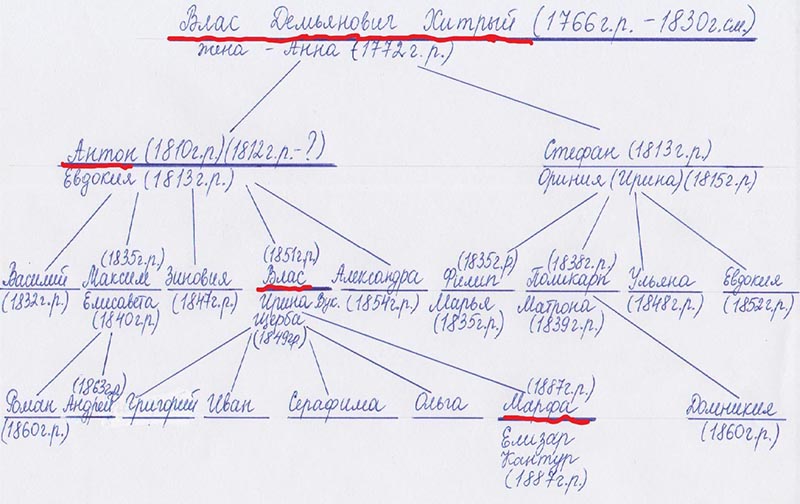 Влас Демьянович Хитрый (1766г.р. - 1830г.см.)
жена - Анна (1772г.р.)
Антон (1810г.р.)(1812г.р.-?)
Евдокия (1813г.р.)
Стефан (1813г.р.)
Ориния (Ирина)(1815г.р)
Василий
(1832г.р.)
(1835г.р.)
Максим
Елисавета
(1840г.р.)
Зиновия
(1847г.р.)
(1851г.р.)
Влас
Ирина Вук.
Щерба
(1849гр)
Александра
(1854г.р.)
(1835г.р)
Филип
Марья
(1835г.р.)
(1838г.р.)
Поликарп
Матрона
(1839г.р.)
Ульяна
(1848г.р.)
Евдокия
(1852г.р.)
Роман
(1860г.р.)
(1863г.р)
Андрей
Григорий
Иван
Серафима
Ольга
(1887г.р.)
Марфа
Елизар
Кантур
(1887г.р.)
Домникия
(1860г.р.)